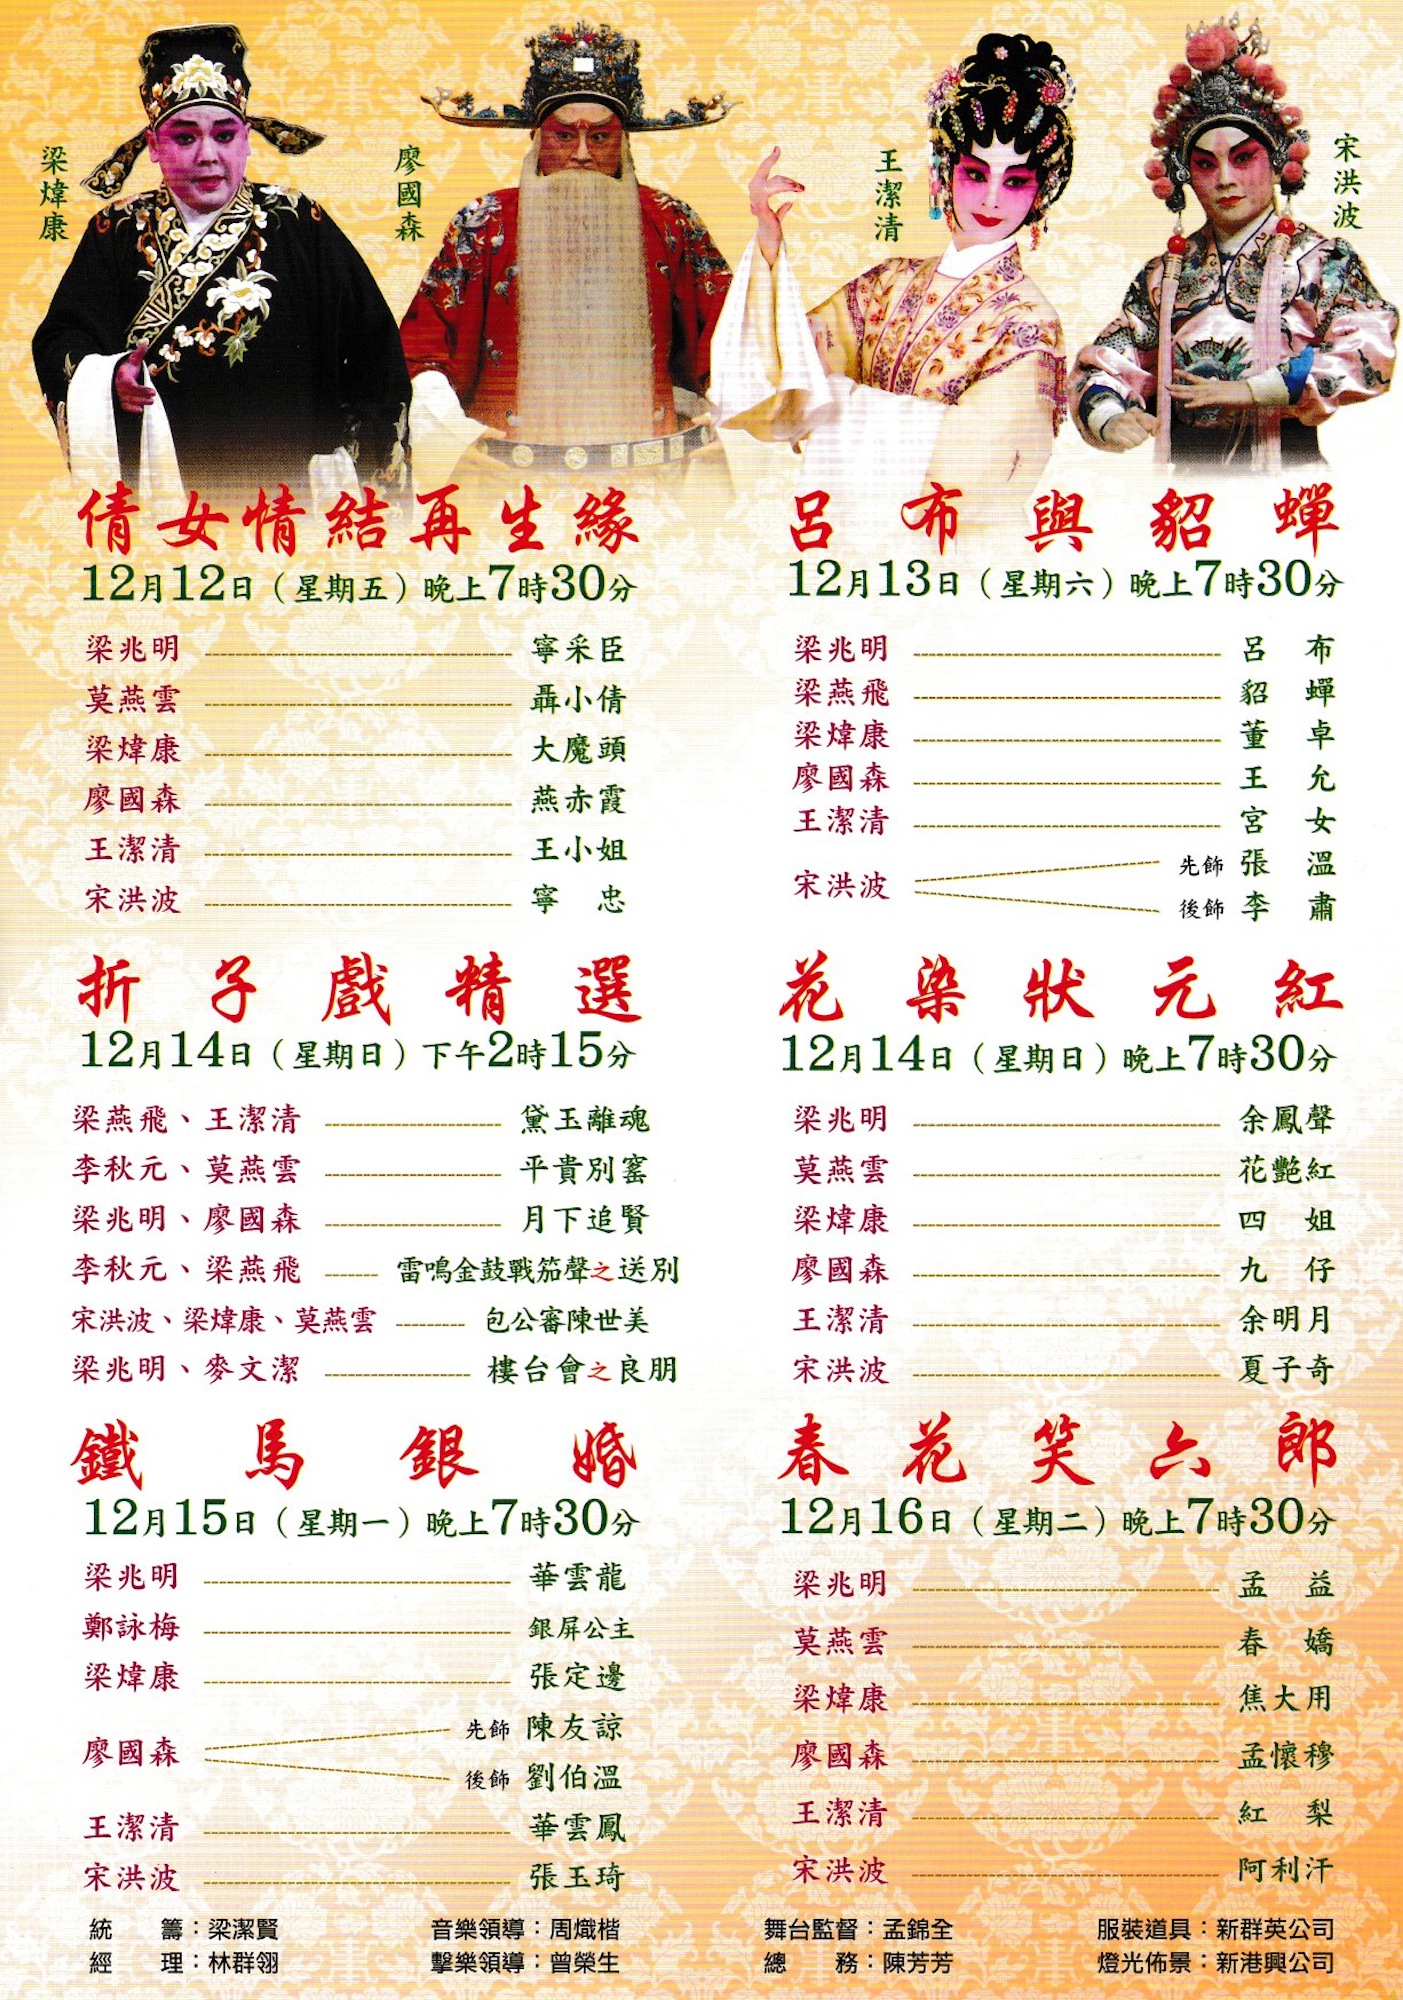 梁煒康
廖國森
王潔清
宋洪波
倩女情結再生緣
12月12日（星期五）晚上7時30分
梁兆明 寧采臣
莫燕雲 聶小倩
梁煒康 大魔頭
廖國森 燕赤霞
王潔清 王小姐
宋洪波 寧忠
呂布與貂蟬
12月13日（星期六）晚上7時30分
梁兆明 呂布
梁燕飛 貂蟬
梁煒康 董卓
廖國森 王允
王潔清 宮女
宋洪波 先飾 張溫
後飾 李肅
折子戲精選
12月14日（星期日）下午2時15分
梁燕飛、王潔清 黛玉離魂
李秋元、莫燕雲 平貴別窰
梁兆明、廖國森 月下追賢
李秋元、梁燕飛 雷鳴金鼓戰笳聲之送別
宋洪波、梁煒康、莫燕雲 包公審陳世美
梁兆明、麥文潔 樓台會之良朋
花染狀元紅
12月14日（星期日）晚上7時30分
梁兆明 余鳳聲
莫燕雲 花艷紅
梁煒康 四姐
廖國森 九仔
王潔清 余明月
宋洪波 夏子奇
鐵馬銀婚
12月15日（星期一）晚上7時30分
梁兆明 華雲龍
鄭詠梅 銀屏公主
梁煒康 張定邊
廖國森 先飾 陳友諒
後飾 劉伯溫
王潔清 華雲鳳
宋洪波 張玉琦
春花笑六郎
12月16日（星期二）晚上7時30分
梁兆明 孟益
莫燕雲 春嬌
梁煒康 焦大用
廖國森 孟懷穆
王潔清 紅梨
宋洪波 阿利汗
統籌：梁潔賢 音樂領導：周熾楷 舞台監督：孟錦全 服裝道具：新群英公司
經理：林群翎 擊樂領導：曾榮生 總務：陳芳芳 燈光佈景：新港興公司